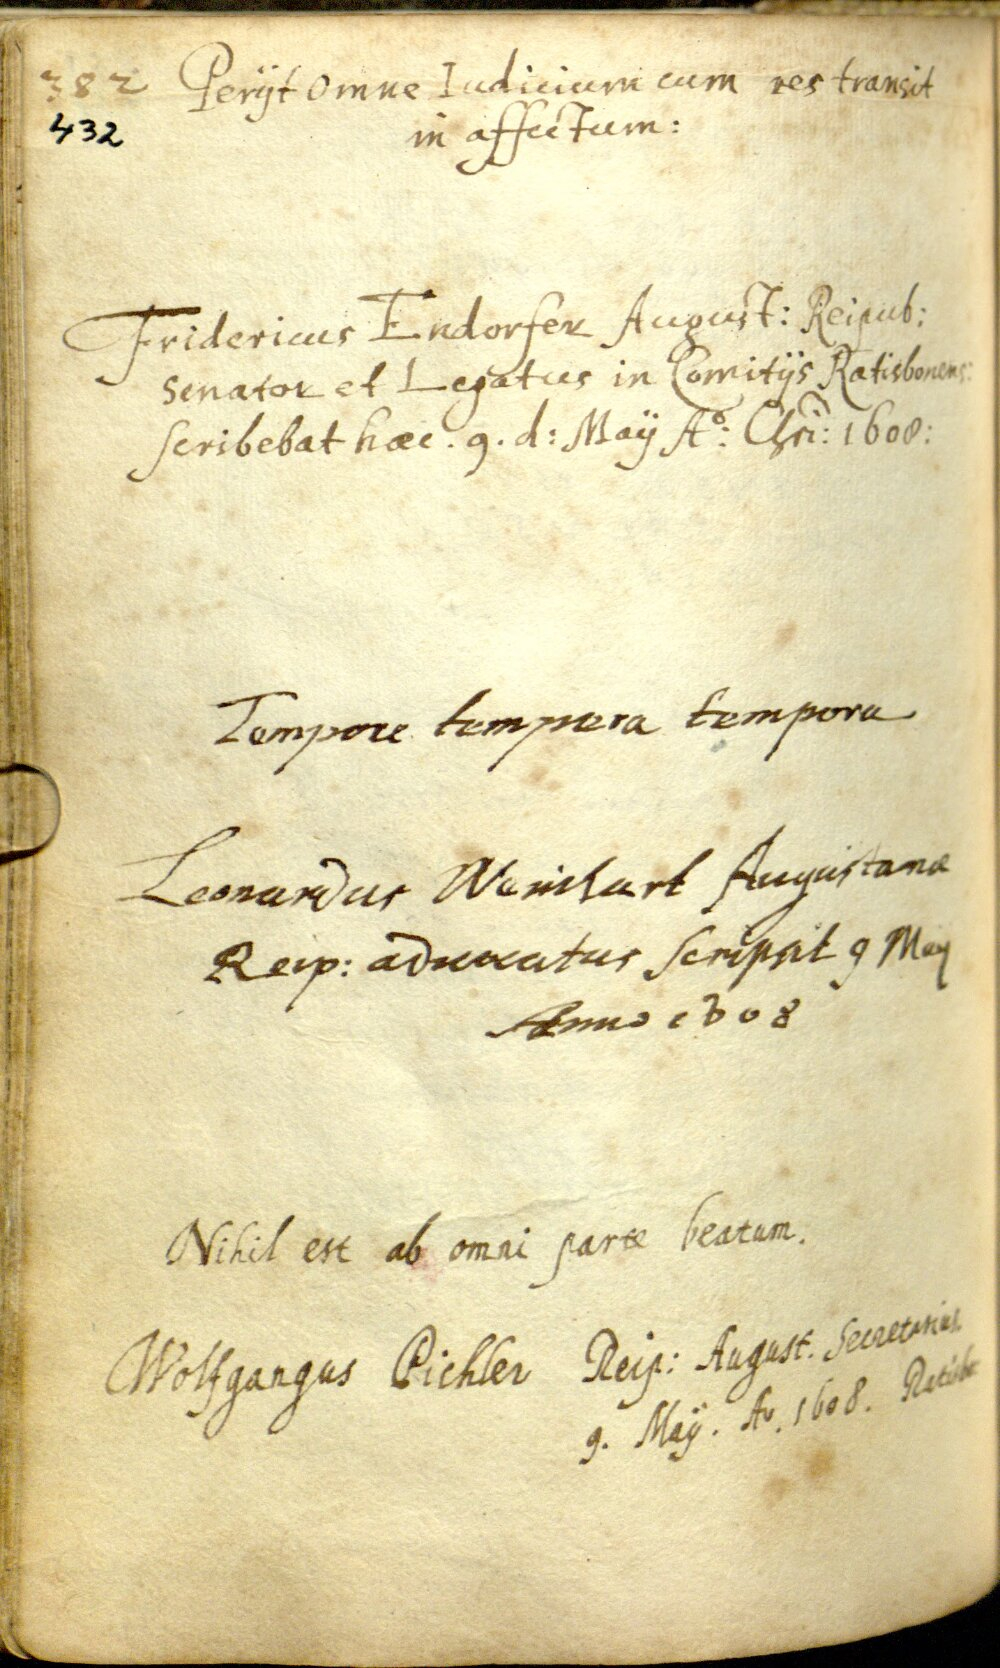 382 Perijt omne Iudicium cum res transit
432 in affectum:
Fridericus Endorfer August: Reipub:
senator et Legatus in Comitijs Ratisbonens:
scribebat haec. 9. d: Maÿ Aº: Chri: 1608:
Tempore tempera tempora
Leonardus Weinhart Augustanae
Reip: aduocatus scripsit 9 Maij
Anno 1608
Nihil est ab omni parte beatum.
Wolfgangus Pichler Reip: August. Secretarius
9. Maÿ. Ao. 1608. Ratisbo